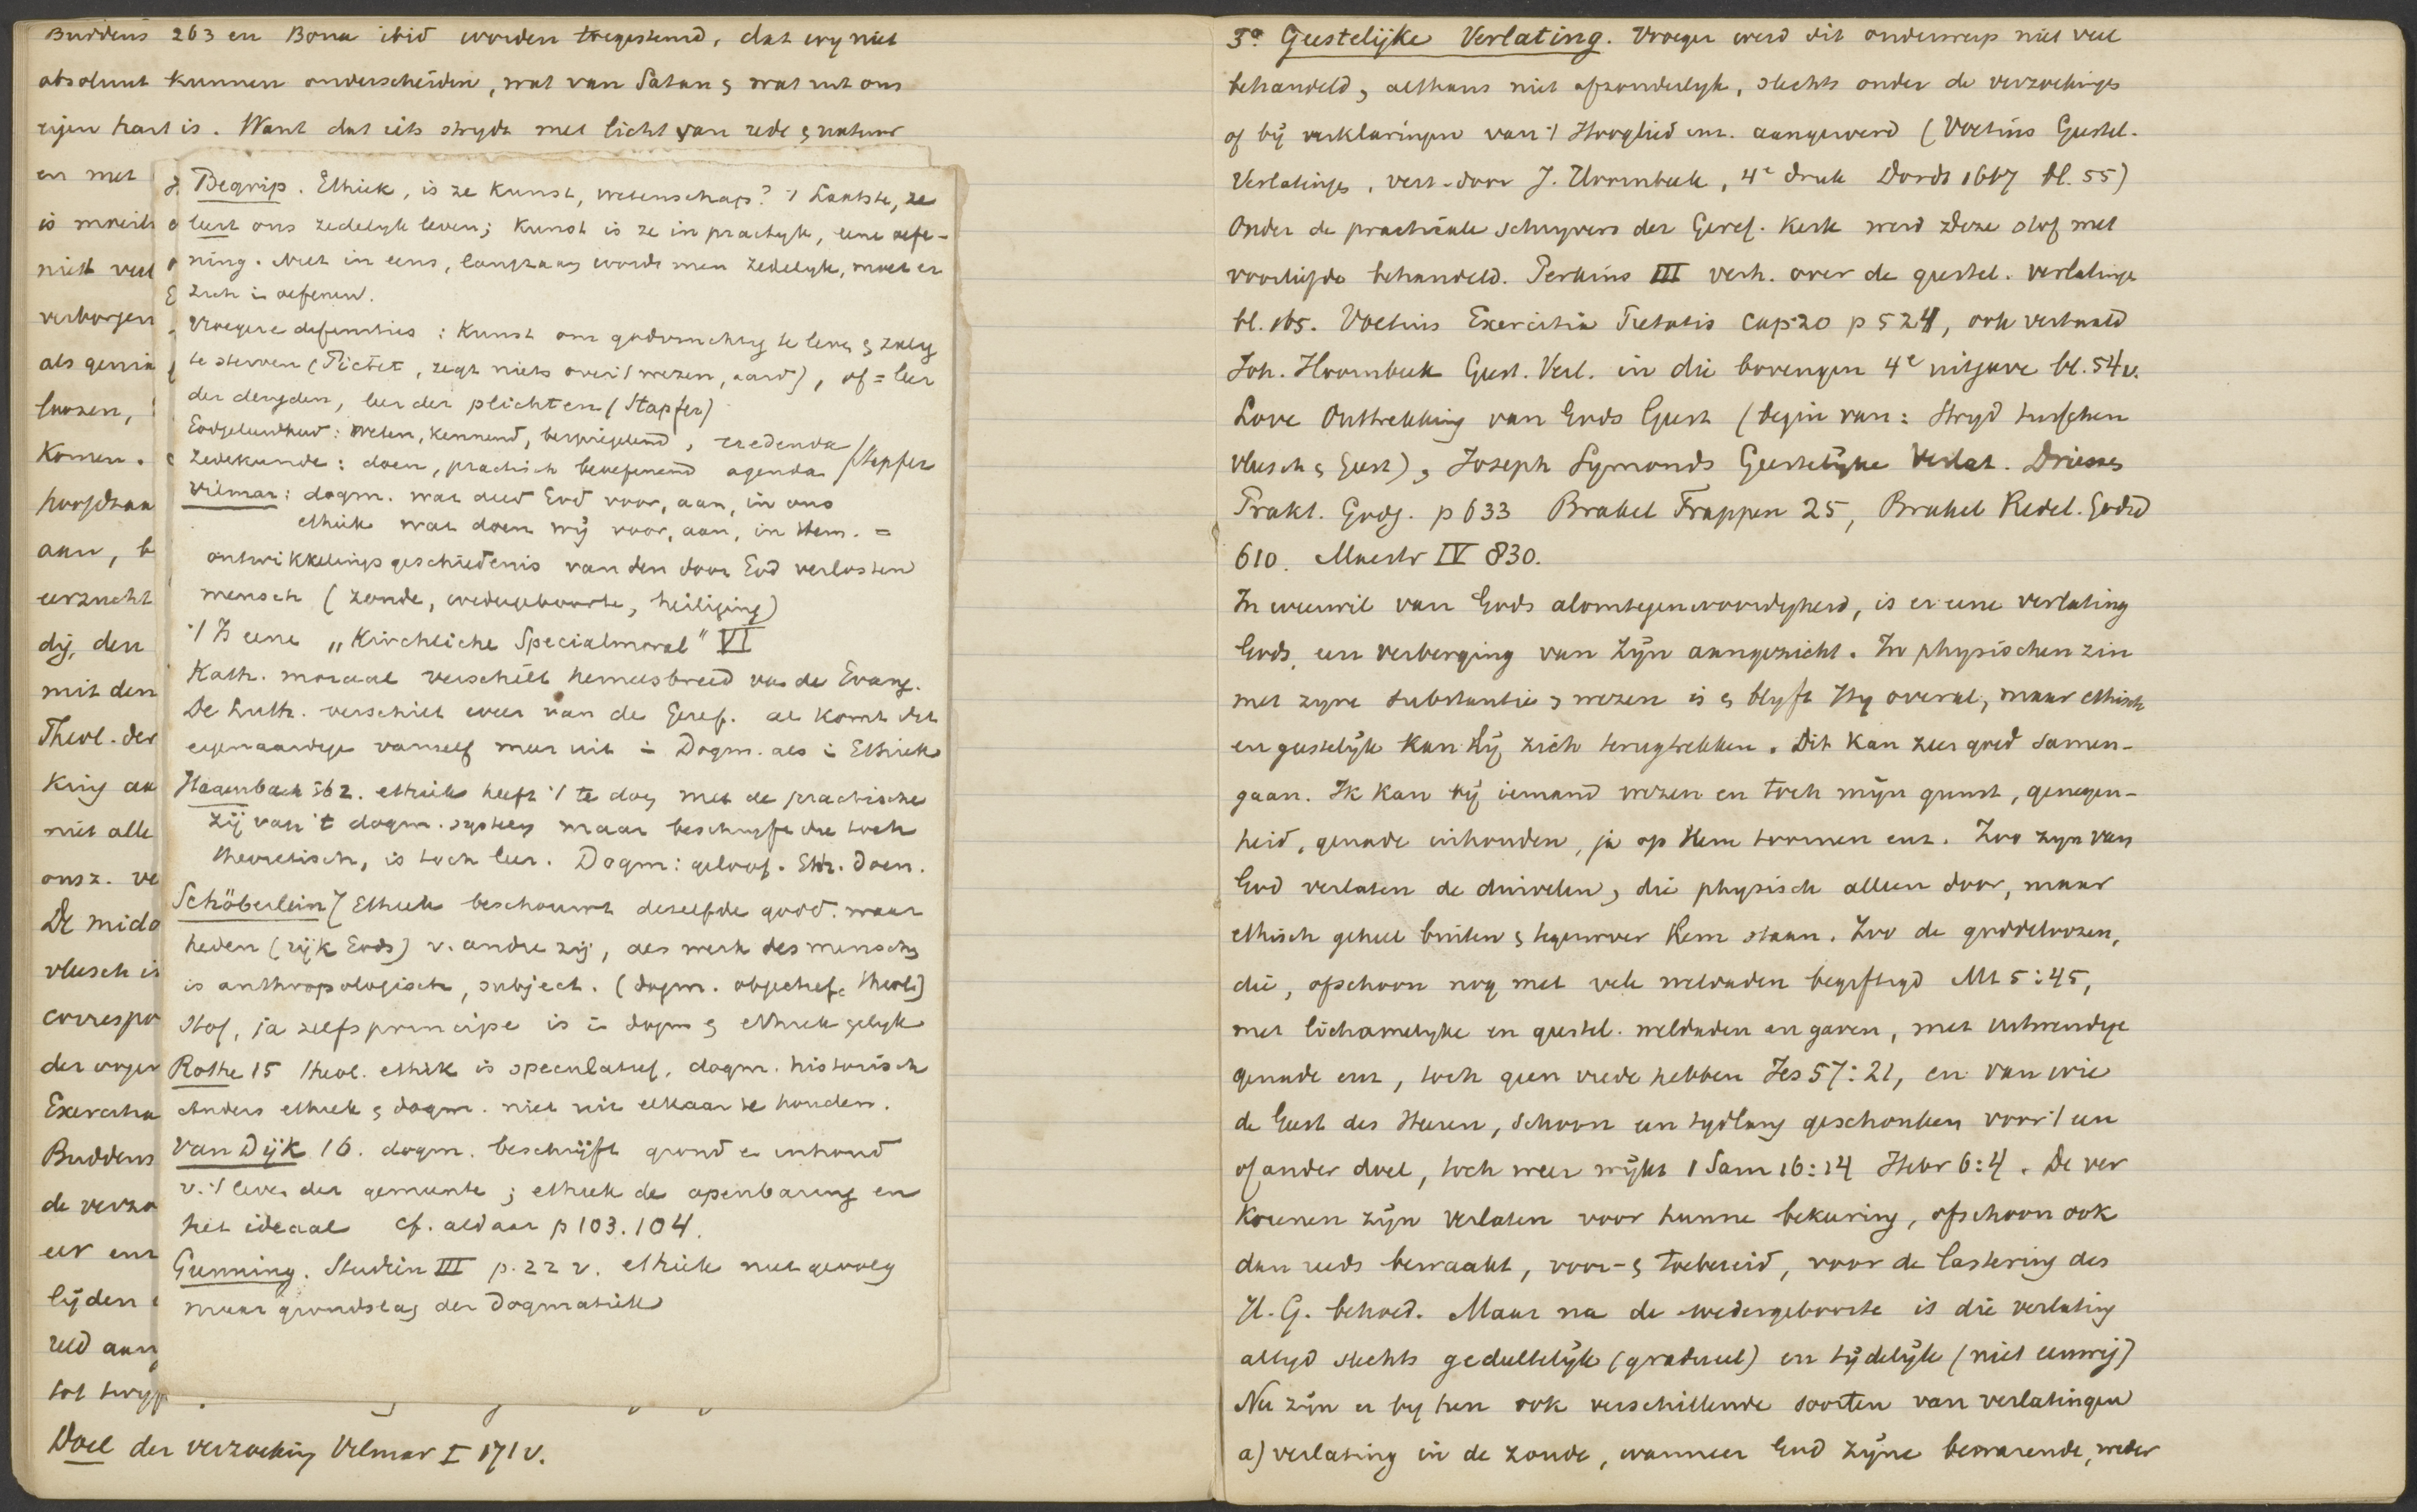 Buddeus 263 en Bona ibid worden toegestemd, dat wy niet
absoluut kunnen onderscheiden, wat van Satan & wat uit ons
eigen hart is. Want dat iets strydt met licht van rede & natuur
en met
is moeil
niet veel
verborgen
als genia
loozen,
Komen.
hoofdzaa
aan, b
eerzucht
dij, den
mit den
Theol. der
King aa
niet alle
onsz. ve
De midd
vleesch is
correspo
der orger
Exercitia
Buddeus
de verzo
eer enz
lijden
reld aan
tot twyf
Doel der verzoeking Vilmar I 171 v.
Begrip. Ethiek, is ze Kunst, wetenschap? 't Laatste, ze
leert ons zedelyk leven; Kunst is ze in practyk, eene oefe-
ning. Niet in eens, langzaam wordt men zedelyk, moet er
zich in oefenen.
Vroegere definities: Kunst om godvruchtig te leven & zalig
te sterven (Pictet, zegt niets over 't wezen, aard), of = leer
der deugden, leer der plichten (Stapfer)
Godgeleerdheid: weten, kennend, bespiegelend, credenda
Zedekunde: doen, practisch beoefenend agenda (Stapfer
Vilmar: dogm. wat deed God voor, aan, in ons
ethiek wat doen wij voor, aan, in Hem. =
ontwikkelingsgeschiedenis van den door God verlosten
mensch (zonde, wedergeboorte, heiliging)
't Is eene „Kirchliche Specialmoral" VI
Kath. moraal verschilt hemelsbreed van de Evang.
De Luth. verschilt weer van de Geref. al komt dit
eigenaardige vanzelf meer uit in Dogm. als in Ethiek
Hagenbach 362. ethiek heeft 't te doen met de practische
zij van 't dogm. systeem maar beschryft die toch
theoretisch, is toch leer. Dogm: geloof. Eth. doen.
Schöberlein 7 Ethiek beschouwt dezelfde godd. waar
heden (rijk Gods) v. andre zij, als werk des menschen
is anthropologisch, subject. (dogm. objectief theol)
Stof, ja zelfs principe is in dogm & ethiek gelyk
Rothe 15 theol. ethik is speculatief, dogm. historisch
Anders ethiek & dogm. niet uit elkaar te houden.
Van Dijk 16. dogm. beschrijft grond en inhoud
v. 't leven der gemeente; ethiek de openbaring en
het ideaal cf. aldaar p 103. 104.
Gunning. Studiën III p. 22 v. ethiek niet gevolg
maar grondslag der Dogmatiek
3° Geestelijke Verlating. Vroeger werd dit onderwerp niet veel
behandeld, althans niet afzonderlyk, slechts onder de verzoekinges
of bij verklaringen van 't Hooglied enz. aangeroerd (Voetius Geestel.
Verlatinge, vert. door J. Hoornbeek, 4e druk Dordt 1667 bl. 55)
Onder de practicale schryvers der Geref. Kerk werd deze stof met
voorliefde behandeld. Perkins III verh. over de geestel. verlatinge
bl. 165. Voetius Exercitia Pietatis cap 20 p 524, ook vertaald
Joh. Hoornbeek Geest. Verl. in die bovengen 4e uitgave bl. 54 v.
Love Onttrekking van Gods Geest (begin van: Stryd tusschen
vleesch & Geest), Joseph Symonds Geestelijke Verlat. Driesses
Prakt. Godg. p 633 Brakel Trappen 25, Brakel Redel. Godsd
610. Mastr IV 830.
In weerwil van Gods alomtegenwoordigheid, is er eene verlating
Gods, een verberging van Zijn aangezicht. In physischen zin
met zyne substantie & wezen is & blyft Hy overal, maar ethisch
en geestelijk kan Hij zich terugtrekken. Dit kan zeer goed samen-
gaan. Ik kan bij iemand wezen en toch mijn gunst, genegen-
heid, genade inhouden, ja op Hem toornen enz. Zoo zyn van
God verlaten de duivelen, die physisch alleen door, maar
ethisch geheel buiten & tegenover Hem staan. Zoo de goddeloozen,
die, ofschoon nog met vele weldaden begiftigd Mt 5:45,
met lichamelyke en geestel. weldaden en gaven, met uitwendige
genade enz, toch geen vrede hebben Jes 57:21, en van wie
de Geest des Heeren, schoon een tydlang geschonken voor 't een
of ander doel, toch weer wijkt 1 Sam 16:14 Hebr 6:4. De ver
korenen zijn verlaten voor hunne bekeering, ofschoon ook
dan reeds bewaakt, voor- & toebereid, voor de lastering des
H. G. behoed. Maar na de wedergeboorte is die verlating
altyd slechts gedeeltelijk (gradueel) en tijdelijk (niet eeuwig)
Nu zijn er by hen ook verschillende soorten van verlatingen
a) verlating in de zonde, wanneer God Zijne bewarende, weder